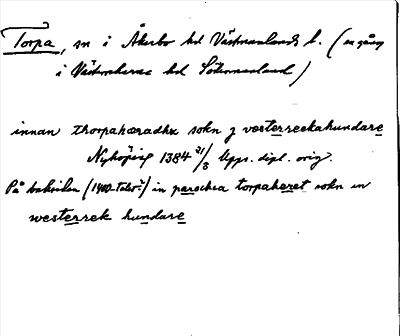 Torpa, sn i Åkerbo hd Västmanlands l. (en gång
i Västerrekarne hd Södermanland)
innan thorpahæradhx sokn j vesterreckahundare
Nyköping 1384 21/3 Upps. dipl. orig.
På baksidan (1400-talet?) in parochia torpaheret sokn in
westerrek hundare